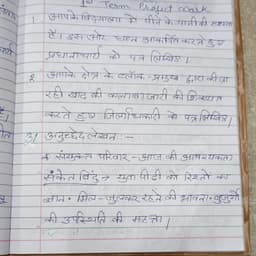 1st Term Project Work
1. आपके विद्यालय में पीने के पानी की समस्या
है। इस ओर ध्यान आकर्षित करते हुए
प्रधानाचार्य को पत्र लिखिए।
2. आपके क्षेत्र के ब्लॉक-प्रमुख द्वारा की जा
रही खाद की कालाबाजारी की शिकायत
करते हुए जिलाधिकारी को पत्र लिखिए।
3) अनुच्छेद लेखन :-
संयुक्त परिवार - आज की आवश्यकता
संकेत बिंदु → युवा पीढ़ी को रिश्तों का
ज्ञान • मिल-जुलकर रहने की भावना • बुजुर्गों
की उपस्थिति की महत्ता।